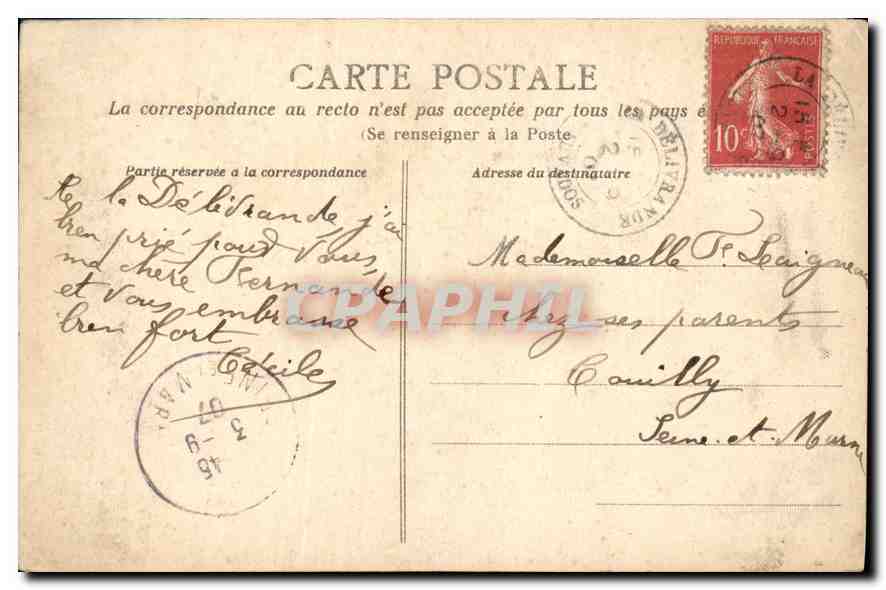 CARTE POSTALE
La correspondance au recto n'est pas acceptée par tous les pays é
(Se renseigner à la Poste
Partie réservée a la correspondance
Adresse du destinataire
REPUBLIQUE FRANÇAISE
10c
POSTES
LA DÉLIVRANDE
De la Délivrande, j'ai
bien prié pour vous,
ma chère Fernande,
et vous embrasse
bien fort
Cécile
Mademoiselle F.
chez ses parents
Couilly
Seine-et-Marne
CPAPHIL
45
3
07